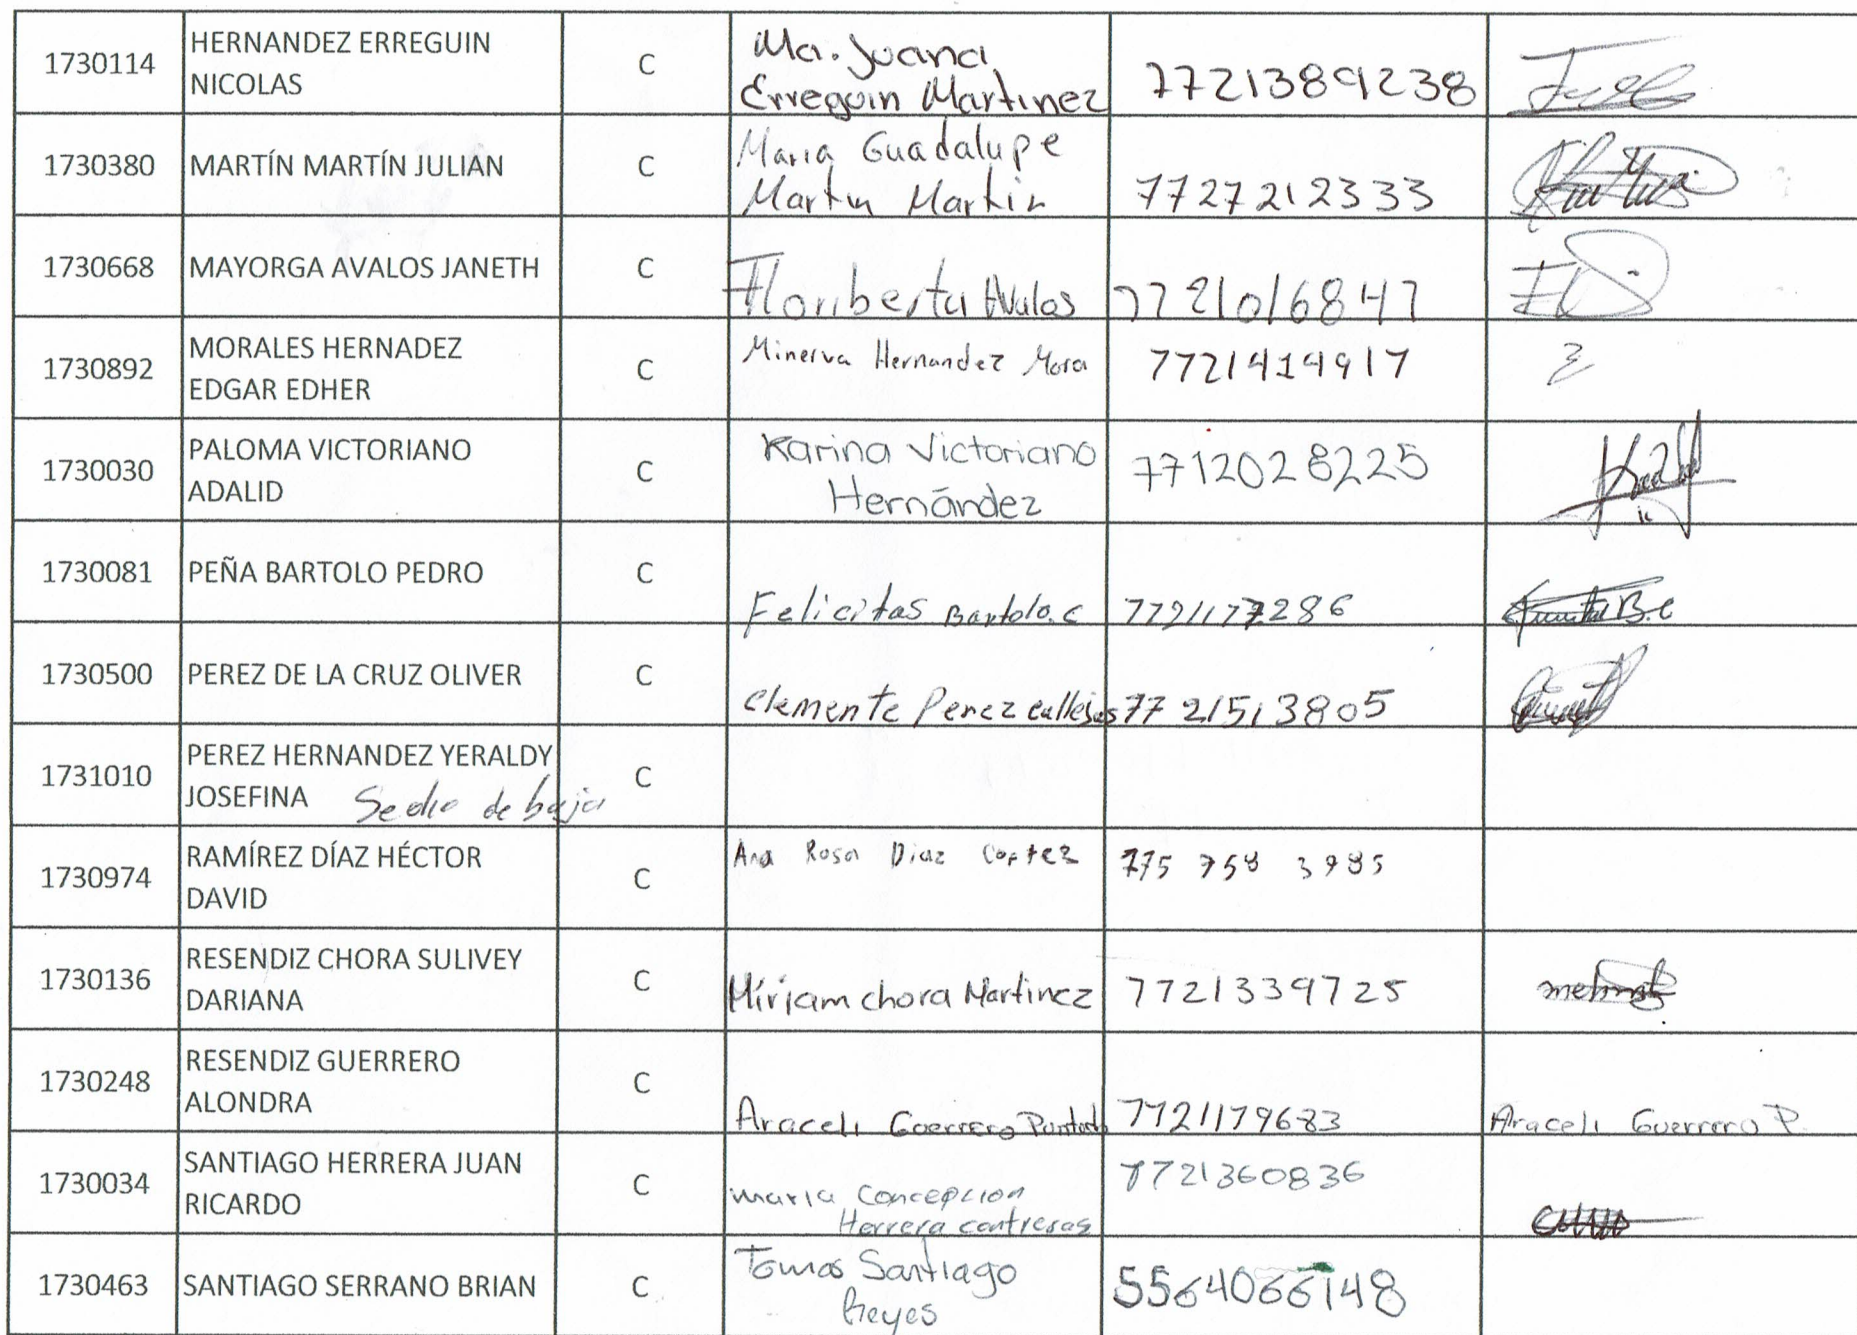 1730114 HERNANDEZ ERREGUIN NICOLAS C Ma. Juana Erreguin Martinez 7721389238
1730380 MARTÍN MARTÍN JULIAN C Maria Guadalupe Martin Martin 7727212333
1730668 MAYORGA AVALOS JANETH C Floriberta Avalos 7721016847
1730892 MORALES HERNADEZ EDGAR EDHER C Minerva Hernandez Mora 7721414917
1730030 PALOMA VICTORIANO ADALID C Karina Victoriano Hernández 7712028225
1730081 PEÑA BARTOLO PEDRO C Felicitas Bartolo. C 7721177286
1730500 PEREZ DE LA CRUZ OLIVER C Clemente Perez callejas 7721513805
1731010 PEREZ HERNANDEZ YERALDY JOSEFINA Se dio de baja C
1730974 RAMÍREZ DÍAZ HÉCTOR DAVID C Ana Rosa Diaz Cortez 775 758
1730136 RESENDIZ CHORA SULIVEY DARIANA C Miriam chora Martinez 7721339725
1730248 RESENDIZ GUERRERO ALONDRA C Araceli Guerrero 7721179683 Araceli Guerrero P.
1730034 SANTIAGO HERRERA JUAN RICARDO C maria Concepcion Herrera contreras 7721360836
1730463 SANTIAGO SERRANO BRIAN C Tomas Santiago Reyes 5564066148